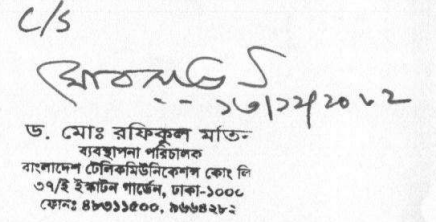 C/S
ড. মোঃ রফিকুল মতিন
ব্যবস্থাপনা পরিচালক
বাংলাদেশ টেলিকমিউনিকেশন্স কোং লি
৩৭/ই ইস্কাটন গার্ডেন, ঢাকা-১০০০
ফোনঃ ৪৮৩১১৫০০,